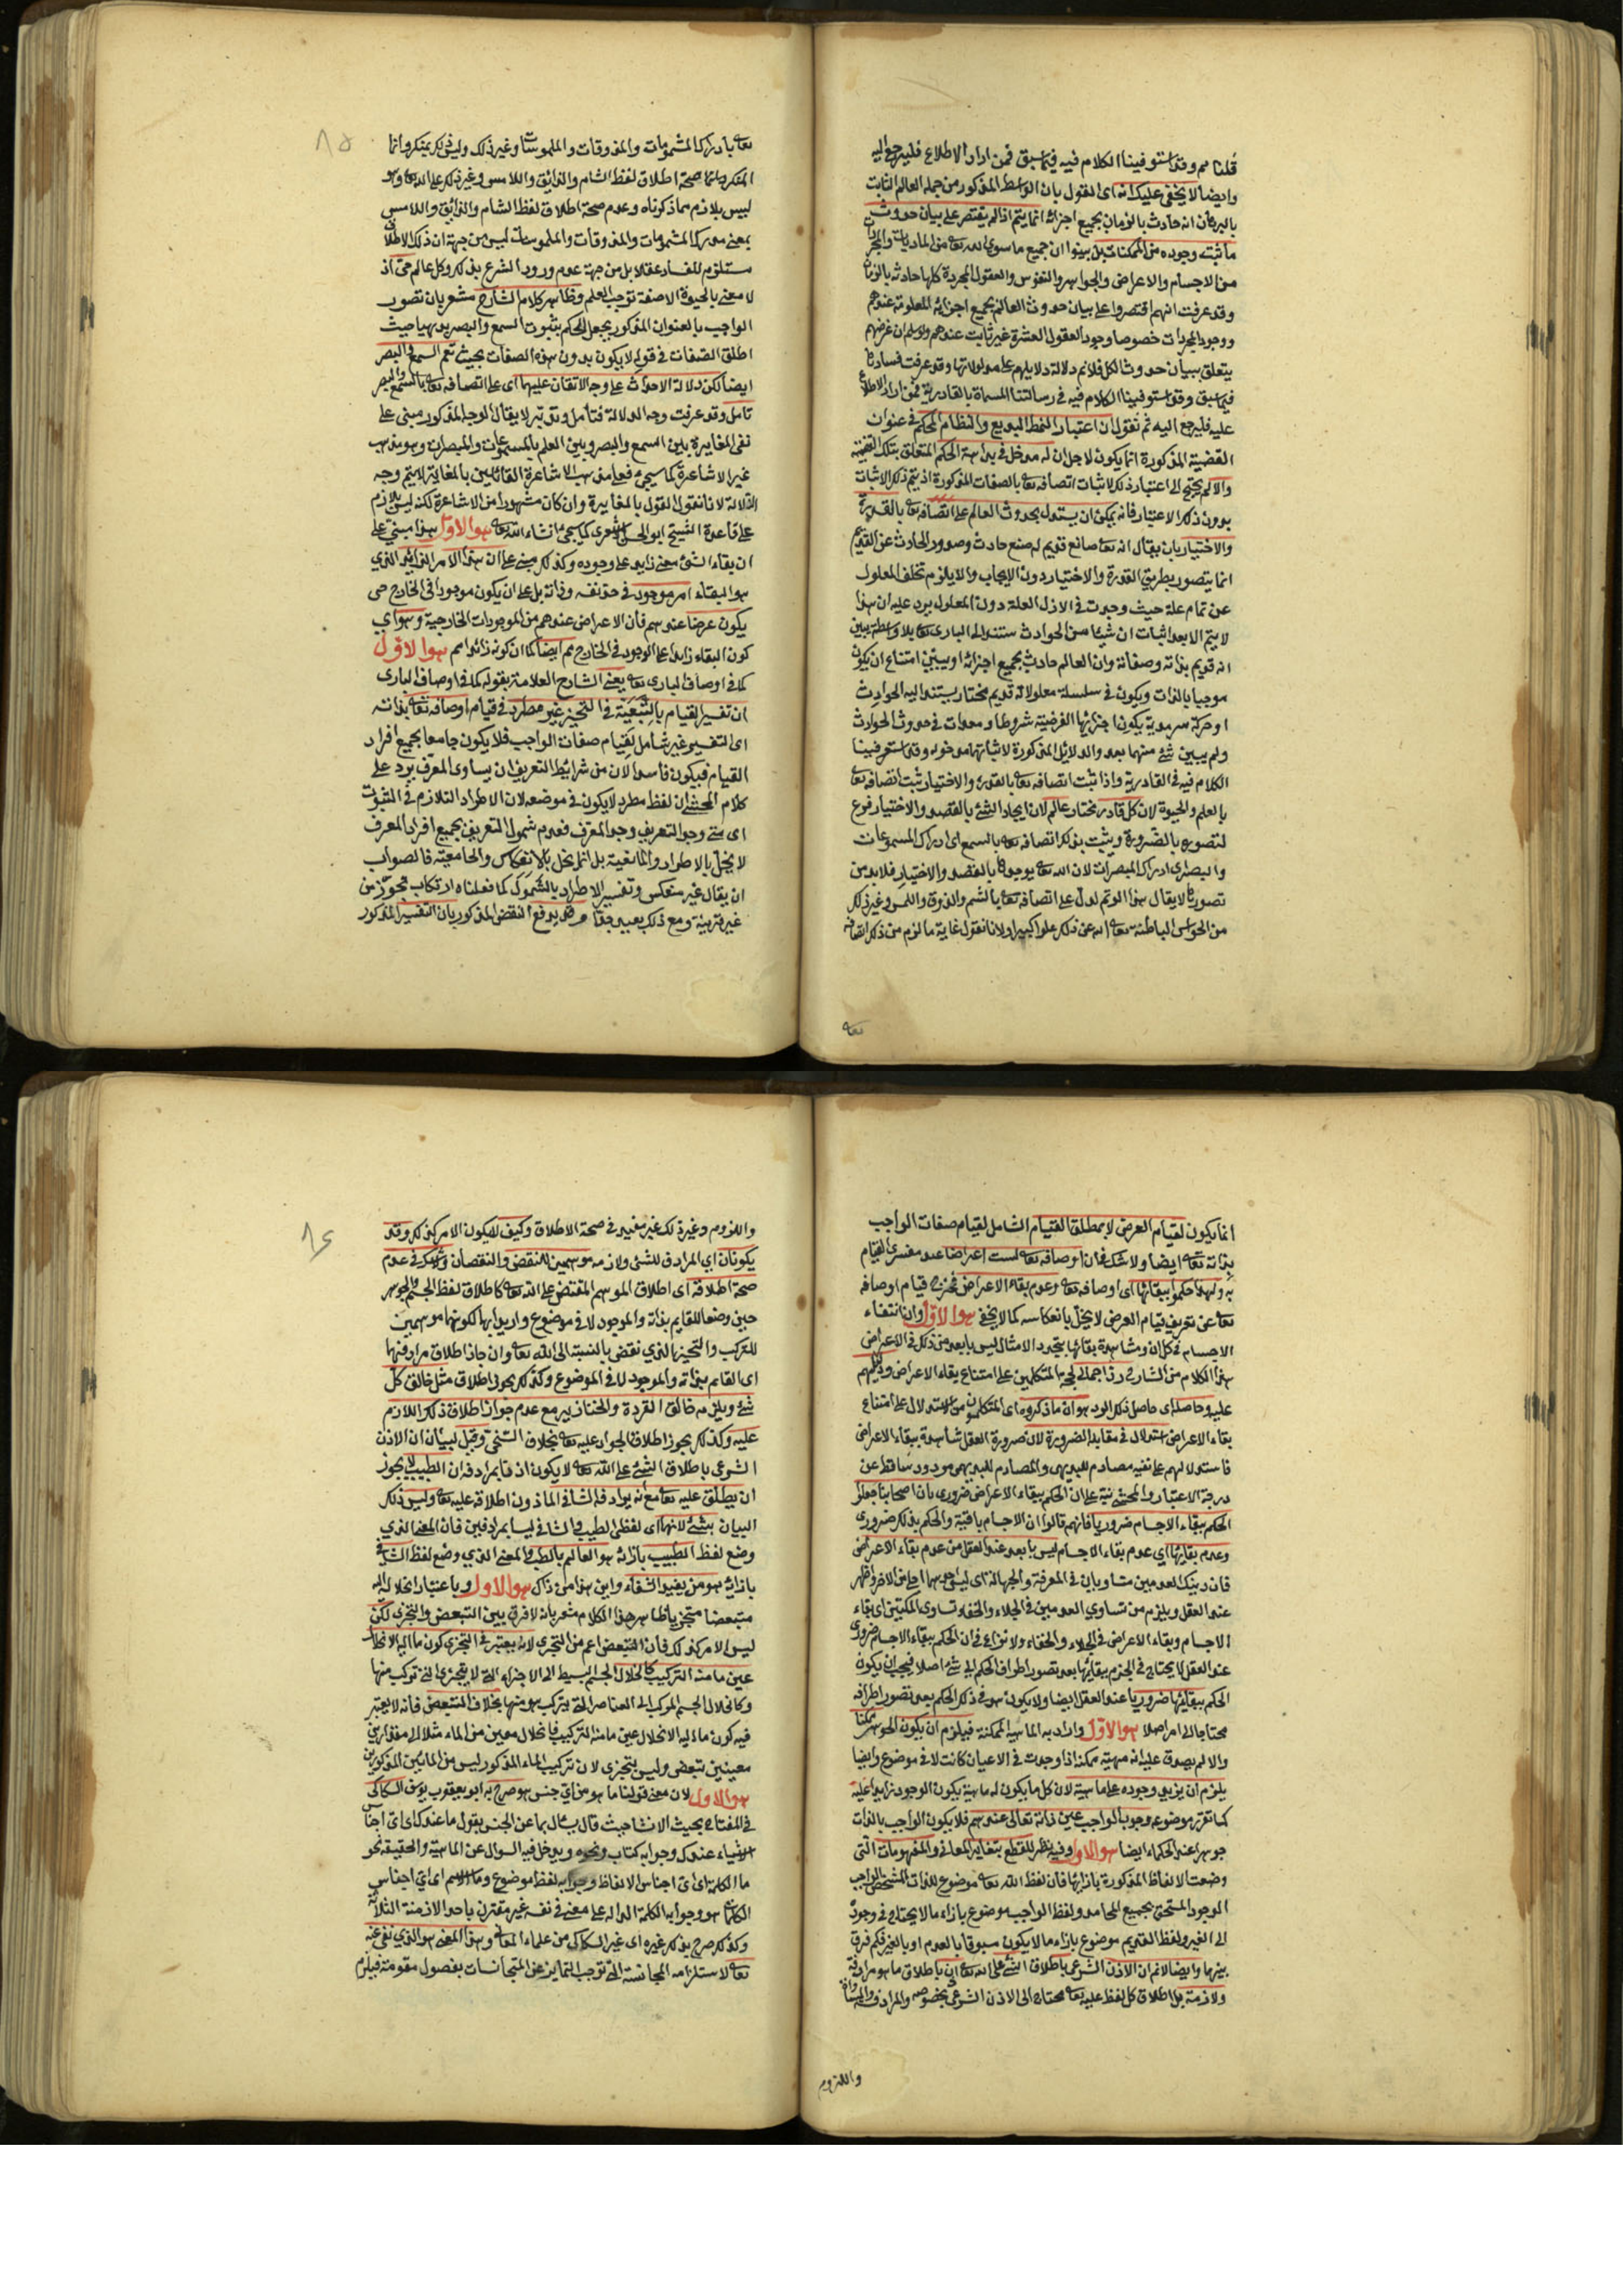 قلنا مم وقد استوفينا الكلام فيه فيما سبق فمن اراد الاطلاع فليرجع اليه
وايضا لا يخفى عليك انه اى القول بان الواسط المذكور من جملة العالم الثابت
بالبرهان انه حادث بالزمان بجميع اجزائه انما يتم اذا لم يقتصر على بيان حدوث
ما ثبت وجوده من الممكنات بل بينوا ان جميع ما سوى الله تعا من الماديات والمجردات
من الاجسام والاعراض والجواهر والنفوس والعقول المجردة كلها حادثة بالزمان
وقد عرفت انهم اقتصروا على بيان حدوث العالم بجميع اجزائه المعلومة عندهم
ووجود المجردات خصوصا وجود العقول العشرة غير ثابت عندهم ولو سلم ان غرضهم
يتعلق ببيان حدوث الكل فلا نم دلالة دلايلهم على مدلولاتها وقد عرفت فسادها
فيما سبق وقد استوفينا الكلام فيه فى رسالتنا المسماة بالقادرية فمن اراد الاطلاع
عليه فليرجع اليه ثم نقول ان اعتبار النمط البديع والنظام المحكم فى عنوان
القضية المذكورة انما يكون لاجل ان له مدخل فى بداهة الحكم المتعلق بتلك القضية
والا لم يحتج الى اعتبار ذلك لاثبات اتصافه تعا بالصفات المذكورة اذ يتم ذلك الاثبات
بدون ذلك الاعتبار فانه يمكن ان يستدل بحدوث العالم على اتصافه تعا بالقدرة
والاختيار بان يقال انه تعا صانع قديم له صنع حادث وصدور الحادث عن القديم
انما يتصور بطريق القدرة والاختيار دون الايجاب والا يلزم تخلف المعلول
عن تمام علة حيث وجدت فى الازل العلة دون المعلول يرد عليه ان هذا
لا يتم الا بعد اثبات ان شيئا من الحوادث مستند الى البارى تعا بلا واسطة يبين
انه قديم بذاته وصفاته وان العالم حادث بجميع اجزائه او يبين امتناع ان يكون
موجبا بالذات ويكون فى سلسلة معلولاته قديم مختار يستند اليه الحوادث
او حركة سرمدية يكون اجزائها الفرضية شروطا ومعدات فى حدوث الحوادث
ولم يبين شئ منهما بعد والدلائل المذكورة لاثباتها مدخولة وقد استوفينا
الكلام فيه فى القادرية واذا ثبت اتصافه تعا بالقدرة والاختيار ثبت اتصافه تعا
بالعلم والحيوة لان كل قادر مختار عالم لان ايجاد الشئ بالقصد والاختيار فرع
لتصوره بالضرورة ويثبت بذلك اتصافه تعا بالسمع اى ادراك المسموعات
والبصر اى ادراك المبصرات لان الله تعا يوجدها بالقصد والاختيار فلا بد من
تصورها لا يقال هذا لو تم لدل على اتصافه تعا بالشم والذوق واللمس وغير ذلك
من الحواس الباطنة تعا الله عن ذلك علوا كبيرا ولانا نقول غاية ما لزم من ذلك اتصافه
تعا
تعا بادراك المشمومات والمذوقات والملموسات وغير ذلك وليس ذلك بمنكر وانما
المنكر انما صحة اطلاق لفظ الشام والذائق واللامس وغير ذلك على الله تعا وهو
ليس بلازم مما ذكرناه وعدم صحة اطلاق لفظ الشام والذائق واللامس
بمعنى مدرك المشمومات والمذوقات والملموسات ليس من جهة ان ذلك الاطلاق
مستلزم للفساد عقلا بل من جهة عدم ورود الشرع بذلك وكل عالم حى اذ
لا معنى بالحيوة الا صفة توجب العلم وظاهر كلام الشارح مشعر بان تصور
الواجب بالعنوان المذكور يجعل الحكم بثبوت السمع والبصر بديهيا حيث
اطلق الصفات فى قوله لا يكون بدون هذه الصفات بحيث تعم السمع والبصر
ايضا لكن دلالة الاحداث على وجه الاتقان عليهما اى على اتصافه تعا بالسمع والبصر
تامل وقد عرفت وجه الدلالة فتأمل وتدبر لا يقال الوجه المذكور مبنى على
نفى المغايرة بين السمع والبصر وبين العلم بالمسموعات والمبصرات وهو مذهب
غير الاشاعرة كما سيجئ فعلى مذهب الاشاعرة القائلين بالمغايرة لا يتم وجه
الدلالة لانا نقول القول بالمغايرة وان كان مشهورا من الاشاعرة لكنه ليس بلازم
على قاعدة الشيخ ابو الحسن الاشعرى كما سيجئ انشاء الله تعا هوالاول هذا مبنى على
ان بقاء الشئ معنى زايد على وجوده وكذلك مبنى على ان هذا الامر الزايد الذى
هو البقاء امر موجود فى حد نفسه وذاته بل على ان يكون موجودا فى الخارج حتى
يكون عرضا عندهم فان الاعراض عندهم من الموجودات الخارجية وهو اى
كون البقاء زايدا على الوجود فى الخارج مم ايضا كما ان كونه زائدا مم هوالاول
كما فى اوصاف البارى تعا يعنى الشارح العلامة بقوله كما فى اوصاف البارى
ان تفسير القيام بالتبعية فى التحيز غير مطرد فى قيام اوصافه تعا بذاته
اى التفسير غير شامل لقيام صفات الواجب فلا يكون جامعا بجميع افراد
القيام فيكون فاسدا لان من شرائط التعريف ان يساوى المعرف يرد على
كلام المحشى ان لفظ مطرد لا يكون فى موضعه لان الاطراد التلازم فى الثبوت
اى متى وجد التعريف وجد المعرف فعدم شمول التعريف بجميع افراد المعرف
لا يخل بالاطراد والمانعية بل انما يخل بالانعكاس والجامعية فالصواب
ان يقال غير منعكس وتفسير الاطراد بالشمول كما فعلناه ارتكاب تجوز من
غير قرينة ومع ذلك بعيد جدا وقد يدفع النقض المذكور بان التفسير المذكور
انما يكون لقيام العرض لا بمطلق القيام الشامل لقيام صفات الواجب
بذاته تعا ايضا ولا شك فى ان اوصافه تعا ليست اعراضا عند مفسرى القيام
به ولهذا حكموا ببقائها اى اوصافه تعا وعدم بقاء الاعراض فخروج قيام اوصافه
تعا عن تعريف قيام العرض لا يخل بانعكاسه كما لا يخفى هوالاول وان انتفاء
الاجسام فى كل ان ومشاهدة بقائها بتجدد الامثال ليس بابعد من ذلك فى الاعراض
هذا الكلام من الشارح رد اجمالى لحجة المتكلمين على امتناع بقاء الاعراض ودليلهم
عليه وحاصله اى حاصل ذلك الرد هو ان ما ذكروه اى المتكلمون من الاستدلال على امتناع
بقاء الاعراض استدلال فى مقابلة الضرورة لان ضرورة العقل شاهدة ببقاء الاعراض
فاستدلالهم على نفيه مصادم للبديهى والمصادم للبديهى مردود ساقط عن
درجة الاعتبار والمحشى نبه على ان الحكم ببقاء الاعراض ضرورى بان اصحابنا جعلوا
الحكم ببقاء الاجسام ضروريا فانهم قالوا ان الاجسام باقية والحكم بذلك ضرورى
وعدم بقائها اى عدم بقاء الاجسام ليس بابعد عند العقل من عدم بقاء الاعراض
فان ذينك العدمين متساويان فى المعرفة والجهالة اى ليس احدهما اجلى من الاخر واظهر
عند العقل ويلزم من تساوى العدمين فى الجلاء والخفاء تساوى الملكتين اى بقاء
الاجسام وبقاء الاعراض فى الجلاء والخفاء ولا نزاع فى ان الحكم ببقاء الاجسام ضرورى
عند العقل لا يحتاج فى الجزم ببقائها بعد تصور اطراف الحكم الى شئ اصلا فيجب ان يكون
الحكم ببقائها ضروريا عند العقل ايضا ولا يكون هو فى ذلك الحكم بعد تصور اطرافه
محتاجا الى امر اصلا هوالاول واراد به الماهية الممكنة فيلزم ان يكون الجوهر ممكنا
والا لم يصدق عليه انه مهية ممكنة اذا وجدت فى الاعيان كانت لا فى موضوع وايضا
يلزم ان يزيد وجوده على ماهيته لان كل ما يكون له ماهية يكون الوجود زايدا عليه
كما تقرر موضوعه وجود الواجب عين ذاته تعالى عندهم فلا يكون الواجب بالذات
جوهرا عند الحكماء ايضا هوالاول وفيه نظر للقطع بتغاير المعانى والمفهومات التى
وضعت الالفاظ المذكورة بازائها فان لفظ الله تعا موضوع للذات المشخص الواجب
الوجود المستحق بجميع المحامد ولفظ الواجب موضوع بازاء ما لا يحتاج فى وجوده
الى الغير ولفظ القديم موضوع بازاء ما لا يكون مسبوقا بالعدم او بالغير فكم فرق
بينها وايضا لا نم ان الاذن الشرعى باطلاق الشئ على الله تعا اذن باطلاق ما هو مرادفه
ولازمه بل اطلاق كل لفظ عليه تعا محتاج الى الاذن الشرعى بخصوصه والمرادف والمساواة
واللزوم
واللزوم وغير ذلك غير مفيد فى صحة الاطلاق وكيف لا يكون الامر كذلك وقد
يكونان اى المرادف للشئ ولازمه موهمين للنقض والنقصان ولا شك فى عدم
صحة اطلاقه اى اطلاق الموهم المقتضى على الله تعا كاطلاق لفظ الجسم والجوهر
حين وضعا للقايم بذاته والموجود لا فى موضوع واريد ابهما لكونهما موهمين
للتركب والتحيز الذى نقض بالنسبة الى الله تعا وان جاز اطلاق مرادفهما
اى القائم بذاته والموجود لا فى الموضوع وكذلك يجوز اطلاق مثل خالق كل
شئ ويلزمه خالق القردة والخنازير مع عدم جواز اطلاق ذلك اللازم
عليه وكذلك يجوز اطلاق الجواد عليه تعا بخلاف السخى وقيل لبيان ان الاذن
الشرعى باطلاق الشئ على الله تعا لا يكون اذنا بمرادفه ان الطبيب لا يجوز
ان يطلق عليه تعا مع انه يرادف الشافى الماذون اطلاقه عليه تعا وليس ذلك
البيان بشئ لانهما اى لفظى الطبيب والشافى ليسا بمرادفين فان المعنى الذى
وضع لفظ الطبيب بازائه هو العالم بالطب والمعنى الذى وضع لفظ الشافى
بازائه هو من يفيد الشفاء واين هذا من ذاك هوالاول وباعتبار انحلاله اليه
متبعضا متجزيا ظاهر هذا الكلام مشعر بانه لا فرق بين التبعض والتجزى لكن
ليس الامر كذلك فان التبعض اعم من التجزى لانه يعتبر فى التجزى كون ما اليه الانحلال
عين ما منه التركيب كانحلال الجسم البسيط الى الاجزاء التى لا يتجزى التى تركب منها
وكانحلال الجسم المركب الى العناصر التى يتركب هو منها بخلاف المتبعض فانه لا يعتبر
فيه كون ما اليه الانحلال عين ما منه التركيب فانحلال معين من الماء مثلا الى مقدارين
معينين تبعض وليس بتجزى لان تركيب الماء المذكور ليس من المائين المذكورين
هوالاول لان معنى قولنا ما هو من اى جنس هو صرح به ابو يعقوب يوسف السكاكى
فى المفتاح بحيث الانشا حيث قال يسأل بما عن الجنس يقول ما عندك اى اى اجناس
الاشياء عندك وجوابه كتاب ونحوه ويدخل فيه السوال عن الماهية والحقيقة نحو
ما الكلمة اى اى اجناس الالفاظ وجوابه لفظ موضوع وما الاسم اى اى اجناس
الكلمات هو وجوابه الكلمة الدالة على معنى فى نفسه غير مقترن باحد الازمنة الثلاثة
وكذلك صرح بذلك غيره اى غير السكاكى من علماء المعانى وهذا المعنى هو الذى نفى عنه
تعا لاستلزامه المجانسة التى توجب التمايز عن المتجانسات بفصول مقومة فيلزم